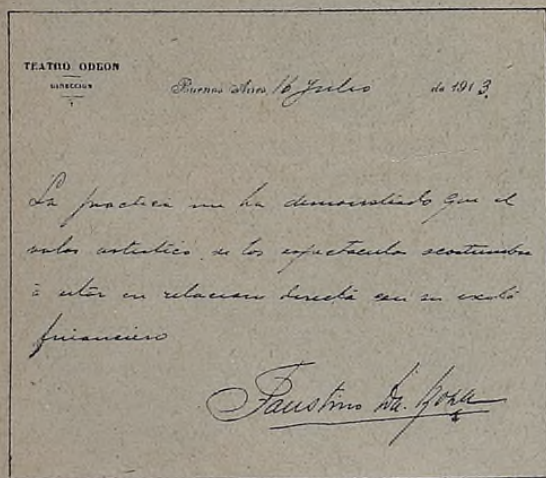 TEATRO ODEON
DIRECCION
Buenos Aires, 16 Julio de 1913.
La practica me ha demonstrado que el
valor artistico de los espectaculos acostumbra
à estar en relacion directa con su exito
financiero
Faustino Da Rosa